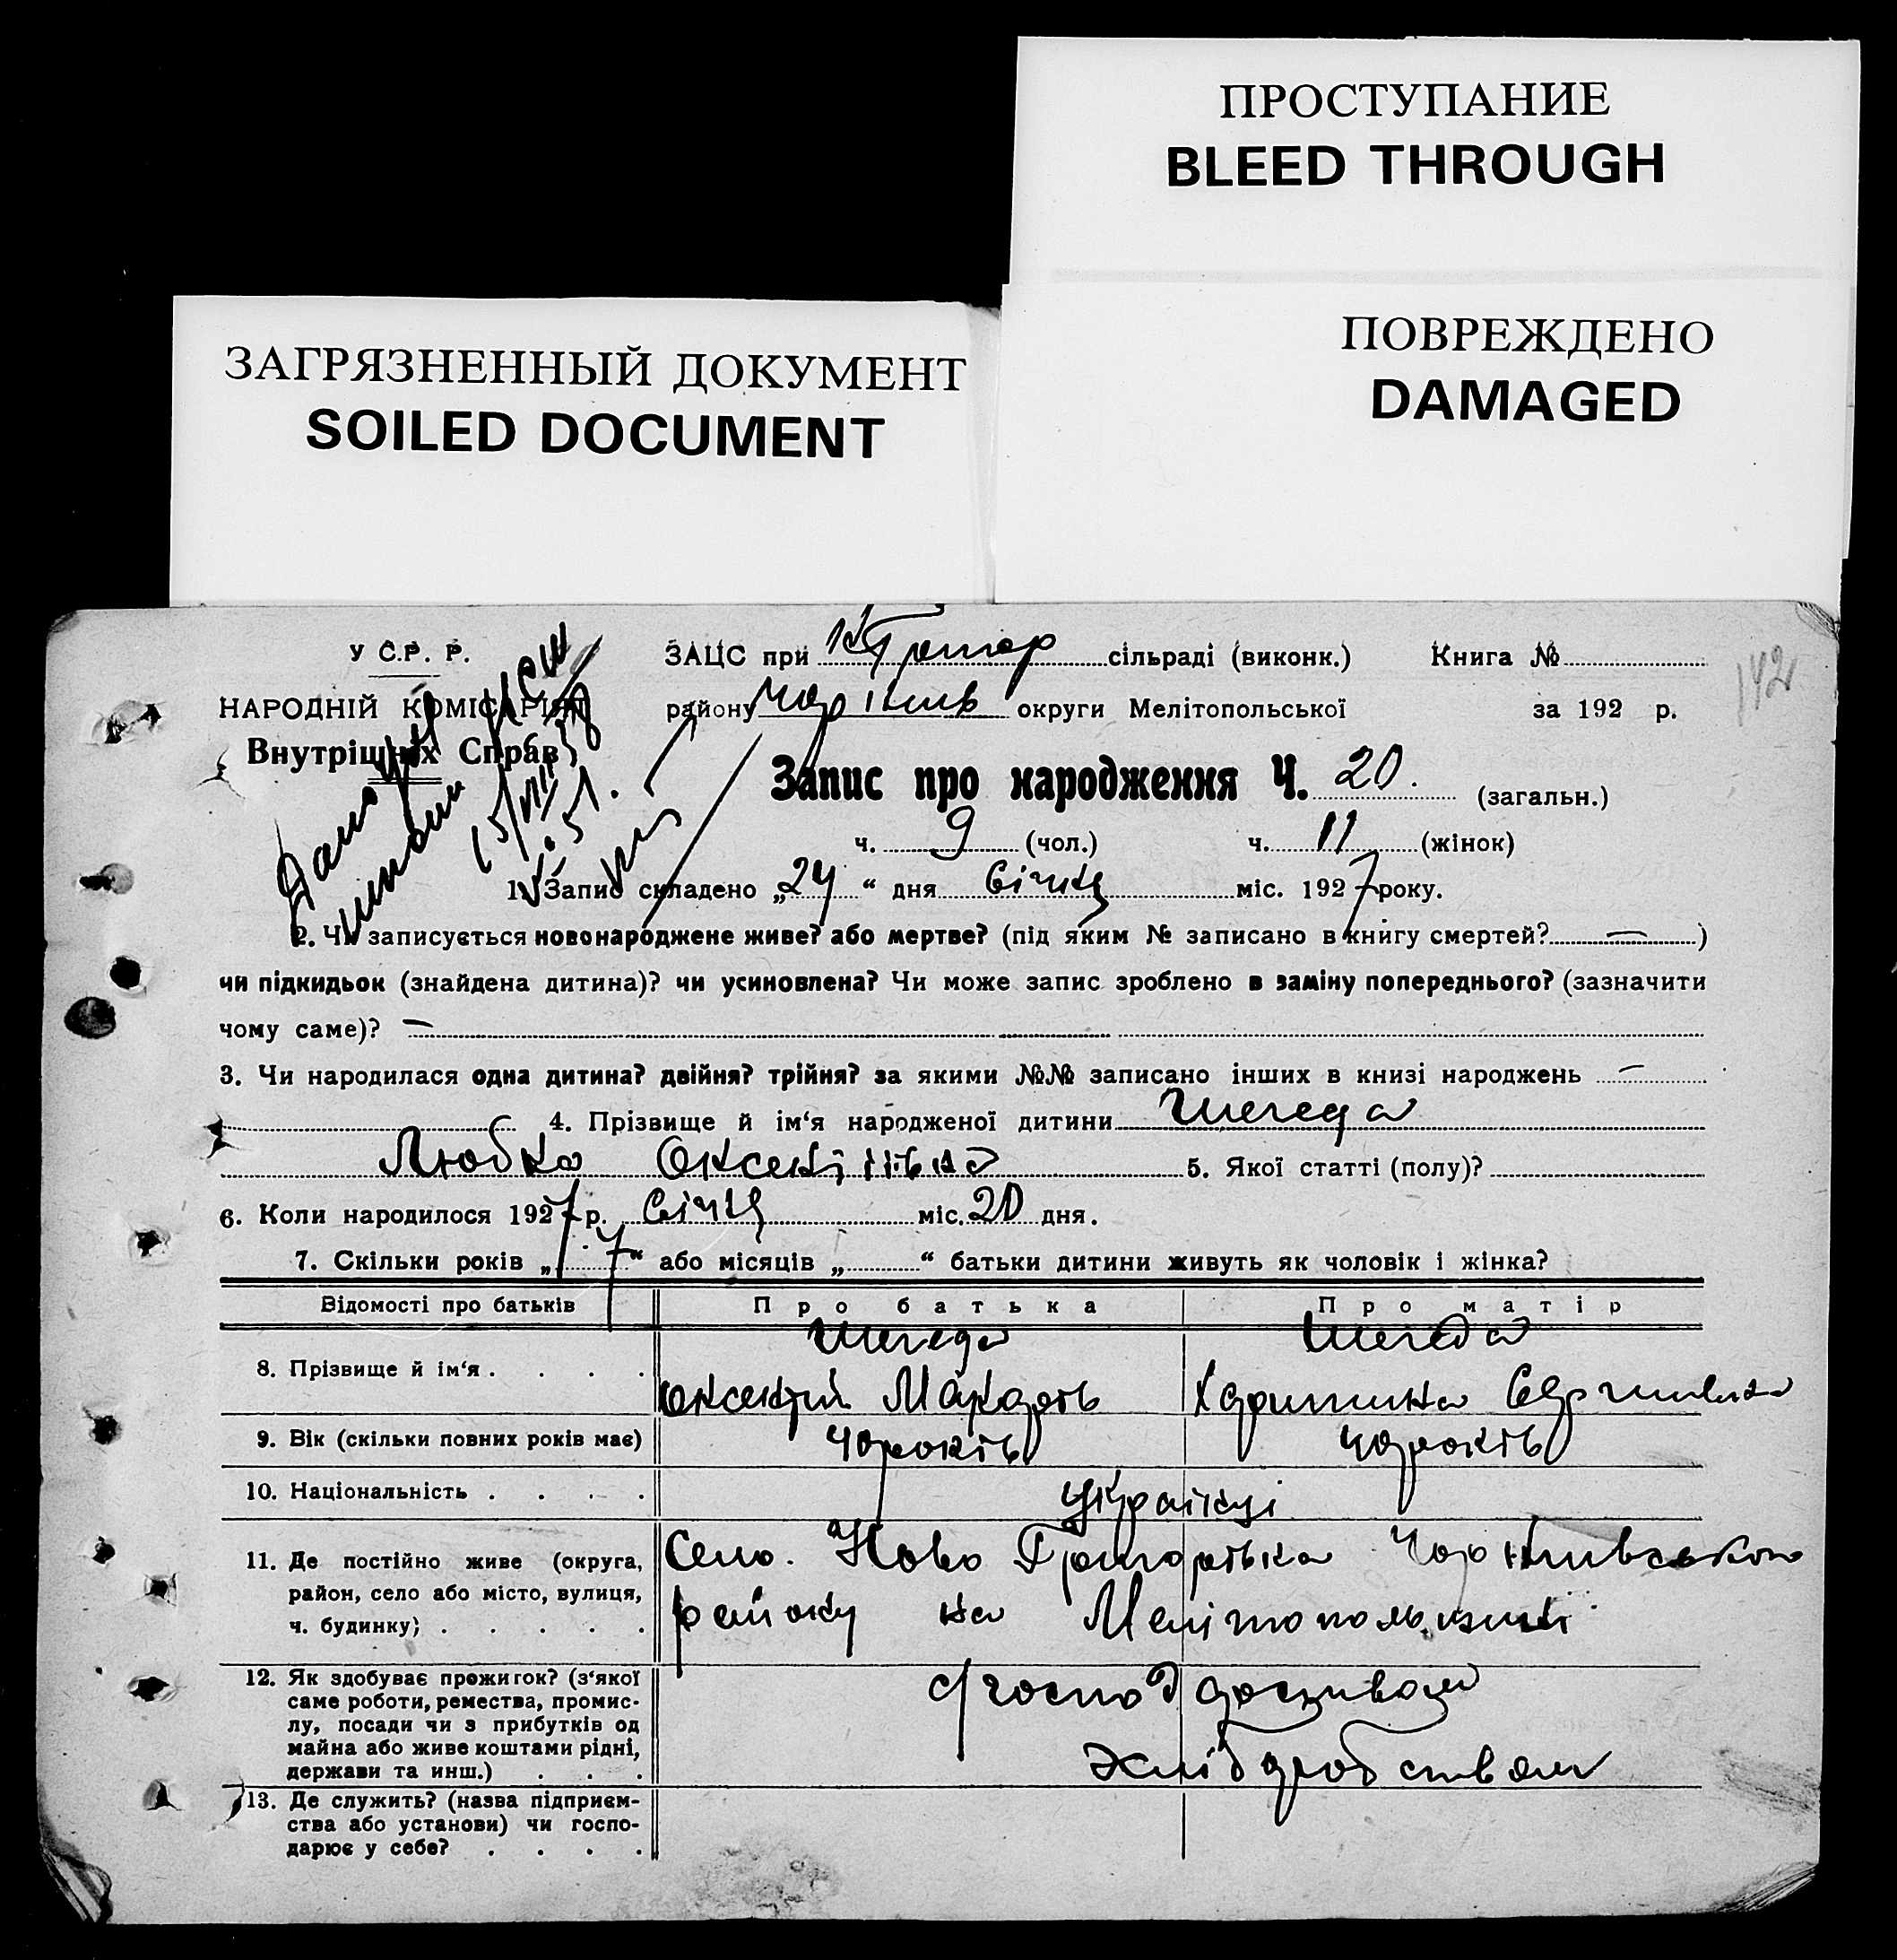 ПРОСТУПАНИЕ
BLEED THROUGH
ПОВРЕЖДЕНО
DAMAGED
ЗАГРЯЗНЕННЫЙ ДОКУМЕНТ
SOILED DOCUMENT
У С.Р. Р.
НАРОДНІЙ КОМІСАРІЯТ
Внутрішніх Справ
ЗАЦС при сільраді (виконк.) Книга №
142
району округи Мелітопольської за 192 р.
Запис про народження Ч. 20. (загальн.)
ч. 9 (чол.) ч. 11 (жінок)
1. Запис складено „24“ дня Січня міс. 1927 року.
2. Чи записується новонароджене живе? або мертве? (під яким № записано в книгу смертей? — )
чи підкидьок (знайдена дитина)? чи усиновлена? Чи може запис зроблено в заміну попереднього? (зазначити
чому саме)? —
3. Чи народилася одна дитина? двійня? трійня? за якими №№ записано інших в книзі народжень —
4. Прізвище й ім‘я народженої дитини Шегеда
Любка 5. Якої статті (полу)?
6. Коли народилося 1927 р. Січня міс. 20 дня.
7. Скільки років „ “ або місяців „ “ батьки дитини живуть як чоловік і жінка?
Відомості про батьків Про батька Про матір
8. Прізвище й ім‘я . . . . Шегеда Шегеда
9. Вік (скільки повних років має) 40 років 40 років
10. Національність . . . . Українці
11. Де постійно живе (округа,
район, село або місто, вулиця,
ч. будинку) . . . . .
Село. Ново Григорівка
району на Мелітопольщині
12. Як здобуває прожиток? (з‘якої
саме роботи, ремества, промис-
лу, посади чи з прибутків од
майна або живе коштами рідні,
держави та инш.) . . .
Хліборобством
13. Де служить? (назва підприєм-
ства або установи) чи госпо-
дарює у себе? . . . .